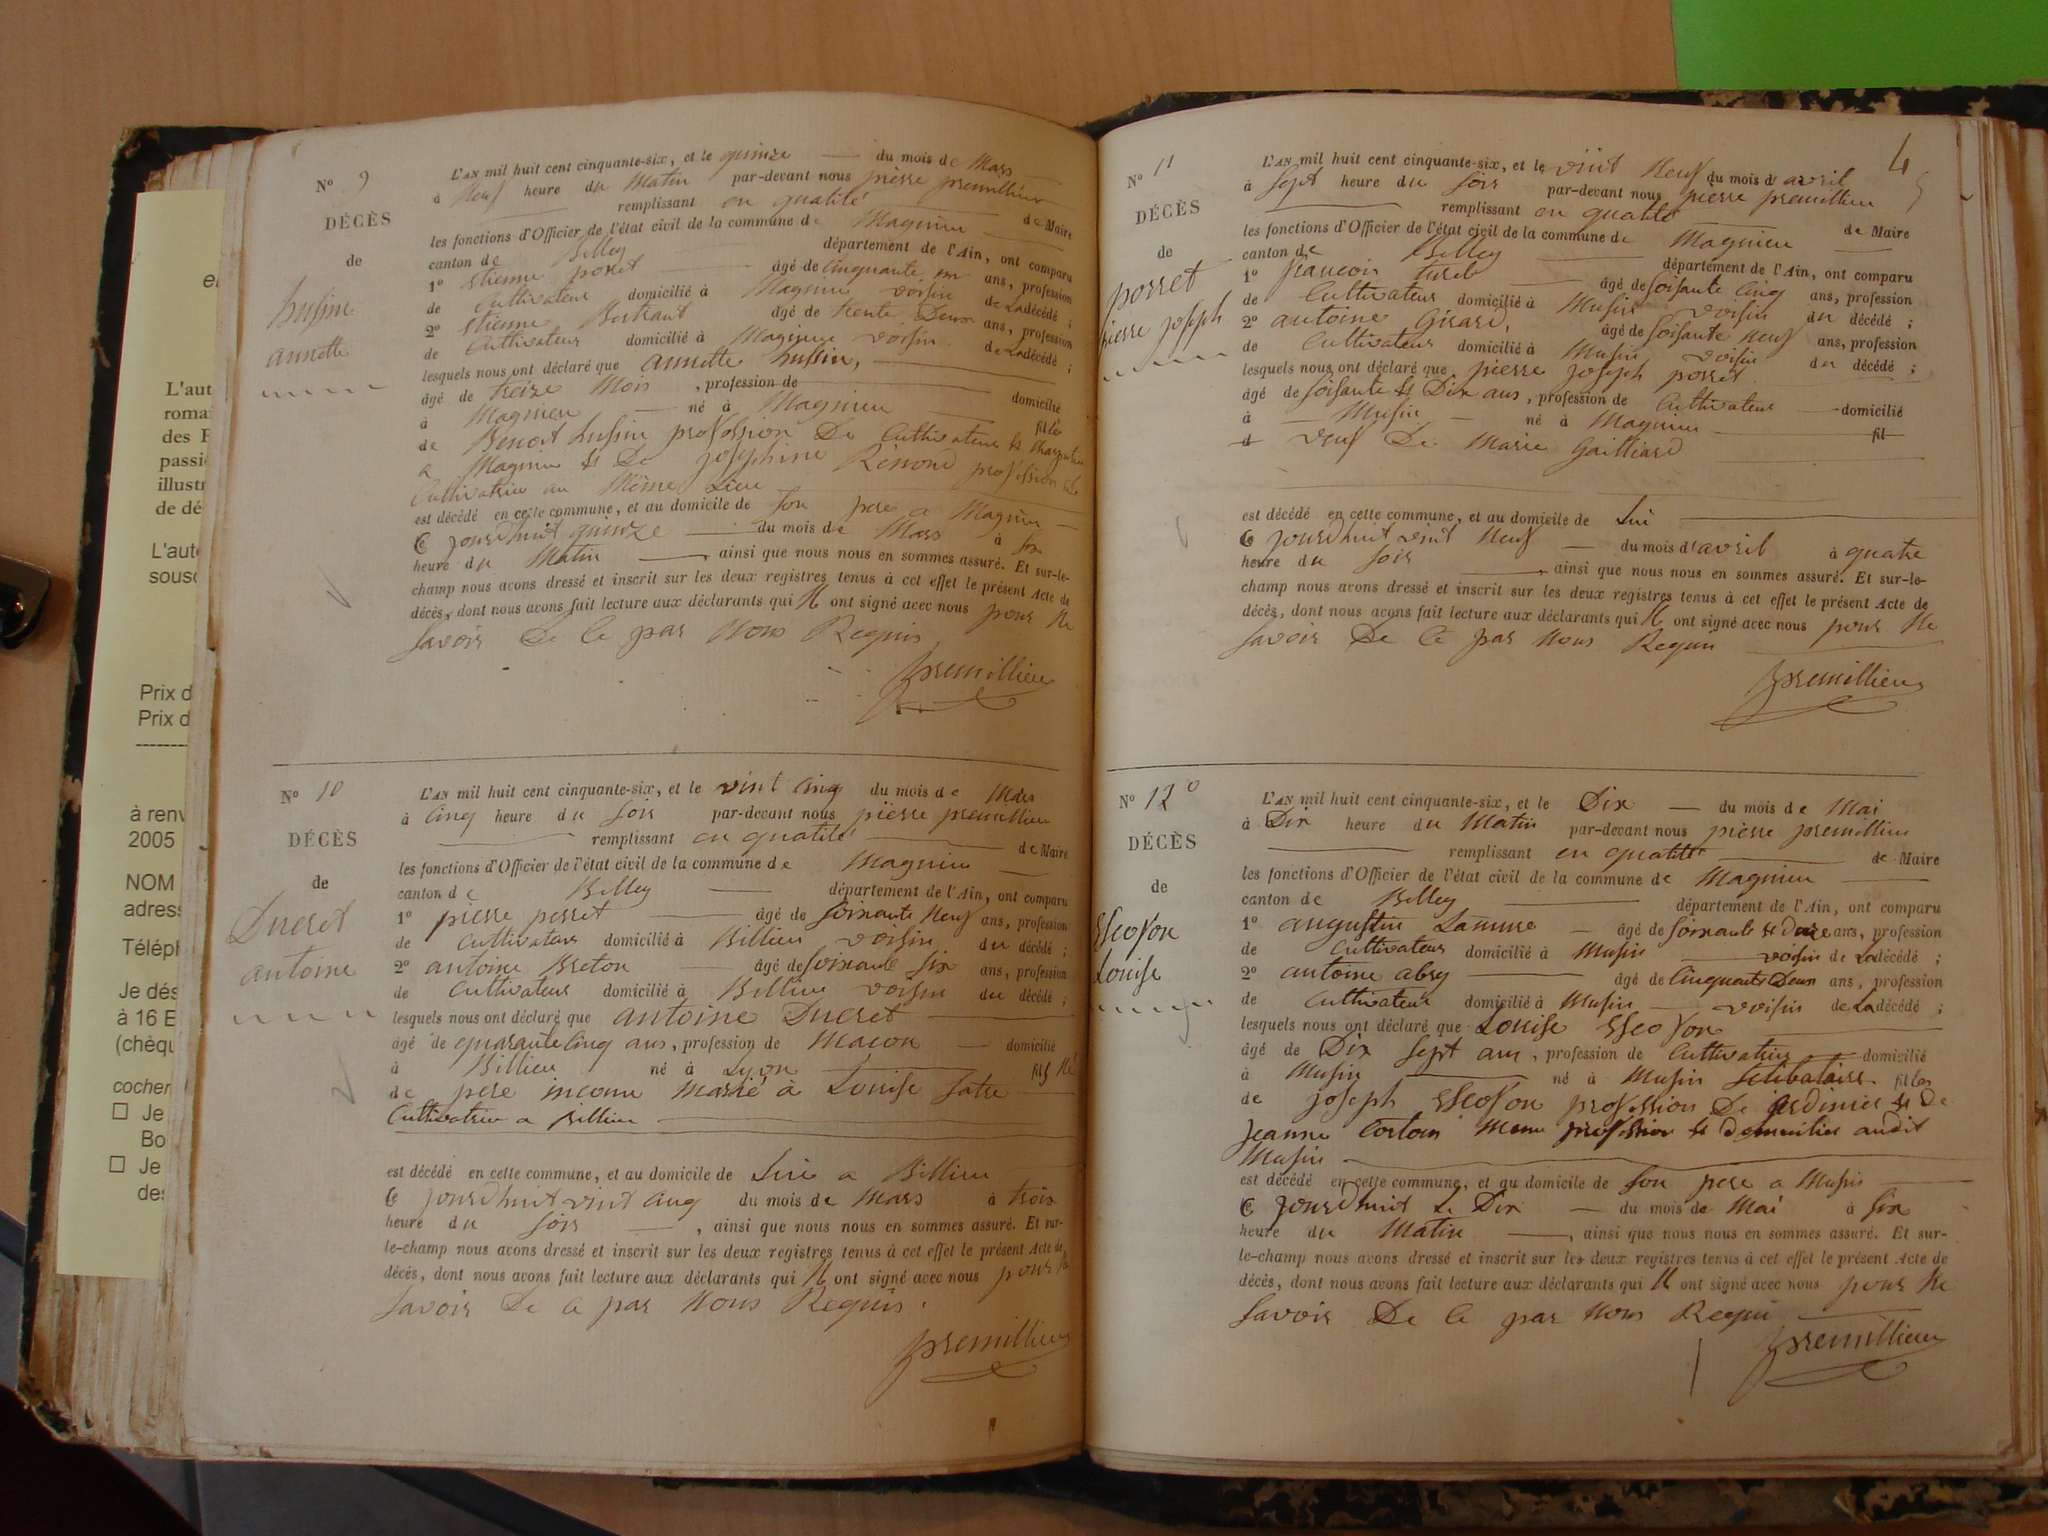 el
L'aut
roma
des F
passi
illustr
de dé
L'aute
sousc
Prix d
Prix d
à renv
2005
NOM
adress
Téléph
Je dés
à 16 E
(chèqu
cocher
Je
Bo
Je
des
N° 9
DÉCÈS
de
hussin
annette
L'AN mil huit cent cinquante-six, et le quinze du mois de Mars
à Neuf heure du Matin par-devant nous pierre premillieu
remplissant en qualité de Maire
les fonctions d'Officier de l'état civil de la commune de Magnieu
canton de Belley département de l'Ain, ont comparu
1° etienne porret âgé de Cinquante un ans, profession
de Cultivateur domicilié à Magnieu voisin de La décédé ;
2° etienne Bertrand âgé de trente Deux ans, profession
de Cultivateur domicilié à Magnieu voisin de La décédé ;
lesquels nous ont déclaré que annette hussin,
âgé de treize Mois, profession de domicilié
à Magnieu né à Magnieu fille
de Benoit hussin profession De Cultivateur et Charpentier
a Magnieu et De josephine Rénond profession de
Cultivatrice au Même Lieu
est décédé en cette commune, et au domicile de Son pere a Magnieu
Ce jourdhuit quinze du mois de Mars à Six
heure du Matin, ainsi que nous nous en sommes assuré. Et sur-le-
champ nous avons dressé et inscrit sur les deux registres tenus à cet effet le présent Acte de
décès, dont nous avons fait lecture aux déclarants qui N ont signé avec nous pour Ne
Savoir De Ce par Nous Requis
premillieu
N° 10
DÉCÈS
de
Ducret
antoine
L'AN mil huit cent cinquante-six, et le vint Cinq du mois de Mars
à Cinq heure du Soir par-devant nous pierre premillieu
remplissant en qualité de Maire
les fonctions d'Officier de l'état civil de la commune de Magnieu
canton de Belley département de l'Ain, ont comparu
1° pierre perret âgé de Soixante Neuf ans, profession
de Cultivateur domicilié à Billieu voisin du décédé ;
2° antoine Breton âgé de Soixante Six ans, profession
de Cultivateur domicilié à Billieu voisin du décédé ;
lesquels nous ont déclaré que antoine Ducret
âgé de quarante Cinq ans, profession de Macon domicilié
à Billieu né à Lyon fils Né
de pere inconu Marié à Louise Satre
Cultivatrice a Billieu
est décédé en cette commune, et au domicile de Lui a Billieu
Ce jourdhuit vint Cinq du mois de Mars à trois
heure du Soir, ainsi que nous nous en sommes assuré. Et sur-
le-champ nous avons dressé et inscrit sur les deux registres tenus à cet effet le présent Acte de
décès, dont nous avons fait lecture aux déclarants qui N ont signé avec nous pour Ne
Savoir De Ce par Nous Requis.
premillieu
4
N° 11
DÉCÈS
de
porret
pierre joseph
L'AN mil huit cent cinquante-six, et le vint Neuf du mois d avril
à Sept heure du Soir par-devant nous pierre premillieu
remplissant en qualité de Maire
les fonctions d'Officier de l'état civil de la commune de Magnieu
canton de Belley département de l'Ain, ont comparu
1° francois turel âgé de Soisante Cinq ans, profession
de Cultivateur domicilié à Musin voisin du décédé ;
2° antoine Girard, âgé de Soisante Neuf ans, profession
de Cultivateur domicilié à Musin voisin du décédé ;
lesquels nous ont déclaré que pierre joseph porret
âgé de Soisante et Dix ans, profession de Cultivateur domicilié
à Musin né à Magnieu fil
d veuf De Marie Gailliard
est décédé en cette commune, et au domicile de Lui
Ce jourdhuit vint Neuf du mois d'avril à quatre
heure du Soir, ainsi que nous nous en sommes assuré. Et sur-le-
champ nous avons dressé et inscrit sur les deux registres tenus à cet effet le présent Acte de
décès, dont nous avons fait lecture aux déclarants qui N ont signé avec nous pour Ne
Savoir De Ce par Nous Requi
premillieu
N° 12°
DÉCÈS
de
Escofon
Louise
L'AN mil huit cent cinquante-six, et le Dix du mois de Mai
à Dix heure du Matin par-devant nous pierre premillieu
remplissant en qualité de Maire
les fonctions d'Officier de l'état civil de la commune de Magnieu
canton de Belley département de l'Ain, ont comparu
1° augustin Lamure âgé de Soixante et Douze ans, profession
de Cultivateur domicilié à Musin voisin de La décédé ;
2° antoine abry âgé de Cinquante Deux ans, profession
de Cultivateur domicilié à Musin voisin de La décédé ;
lesquels nous ont déclaré que Louise Escofon
âgé de Dix Sept ans, profession de Cultivatrice domicilié
à Musin né à Musin Selibataire fille
de joseph Escofon profession De jardinier et De
jeanne Meme profession et Domicilier audit
Musin
est décédé en cette commune, et au domicile de Son pere a Musin
Ce jourdhuit Le Dix du mois de Mai à Six
heure du Matin, ainsi que nous nous en sommes assuré. Et sur-
le-champ nous avons dressé et inscrit sur les deux registres tenus à cet effet le présent Acte de
décès, dont nous avons fait lecture aux déclarants qui N ont signé avec nous pour Ne
Savoir De Ce par Nous Requi
premillieu